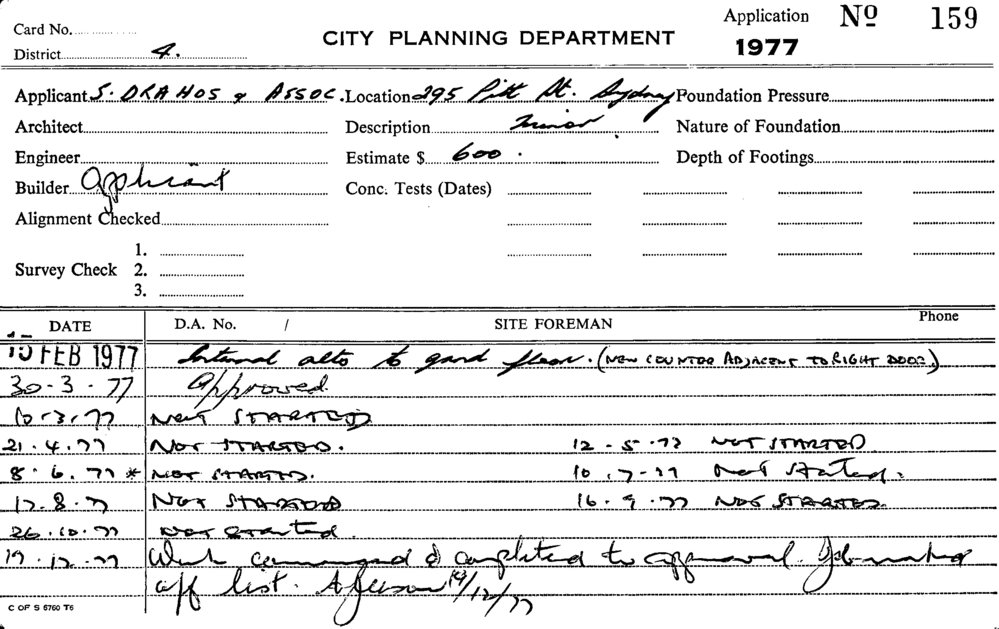 Card No.
Application No 159
District 4.
CITY PLANNING DEPARTMENT
1977
Applicant S. DRAHOS & ASSOC. Location 295 Pitt St. Sydney Foundation Pressure
Architect Description Minor. Nature of Foundation
Engineer Estimate $ 600. Depth of Footings
Builder Applicant Conc. Tests (Dates)
Alignment Checked
1.
Survey Check 2.
3.
DATE D.A. No. / SITE FOREMAN Phone
FEB 1977 Internal alts to grnd floor. (NEW COUNTER ADJACENT TO RIGHT DOOR)
30-3-77 Approved
10-3-77 Not STARTED
21.4.77 NOT STARTED. 12-5-77 NOT STARTED
8.6.77 * NOT STARTED. 10.7-77 Not Started.
17.8.77 NOT STARTED 16-9.77 NOT STARTED.
26.10.77 Not Started.
19.12.77 Work commenced & completed to approval. Job marked
off list. 19/12/77
C OF S 6760 T6